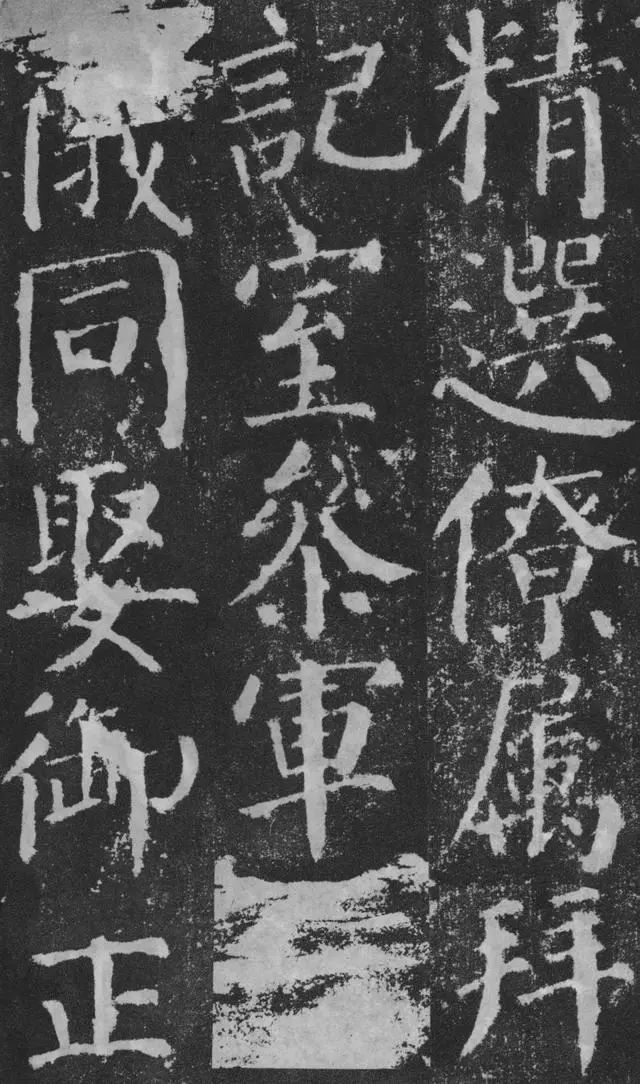 精選僚属拜
記室參軍
儀同娶御正